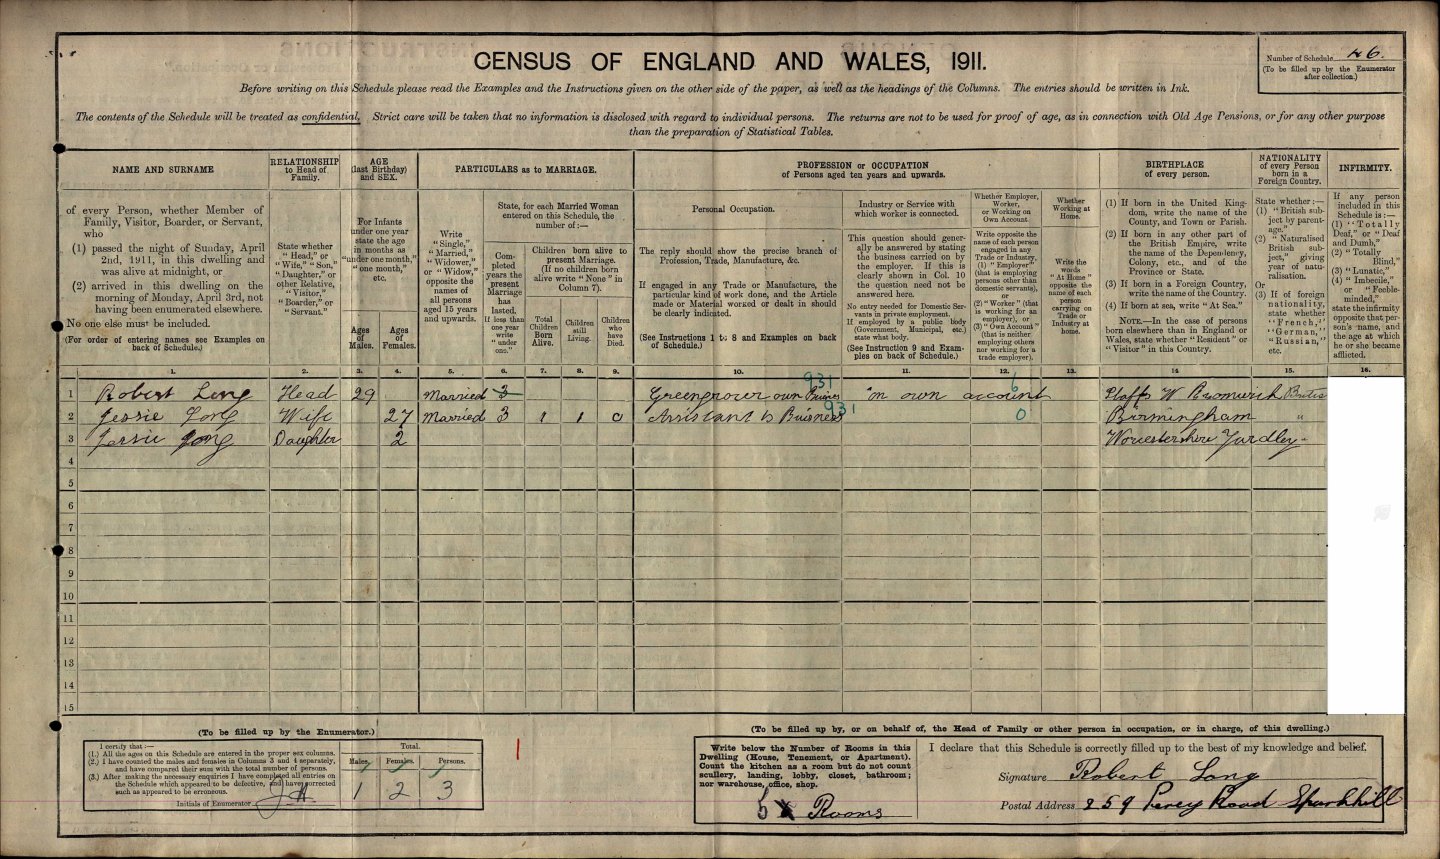 CENSUS OF ENGLAND AND WALES, 1911.
Number of Schedule 46.
(To be filled up by the Enumerator
after collection.)
Before writing on this Schedule please read the Examples and the Instructions given on the other side of the paper, as well as the headings of the Columns. The entries should be written in Ink.
The contents of the Schedule will be treated as confidential. Strict care will be taken that no information is disclosed with regard to individual persons. The returns are not to be used for proof of age, as in connection with Old Age Pensions, or for any other purpose
than the preparation of Statistical Tables.
NAME AND SURNAME
of every Person, whether Member of
Family, Visitor, Boarder, or Servant,
who
(1) passed the night of Sunday, April
2nd, 1911, in this dwelling and
was alive at midnight, or
(2) arrived in this dwelling on the
morning of Monday, April 3rd, not
having been enumerated elsewhere.
No one else must be included.
(For order of entering names see Examples on
back of Schedule.)
RELATIONSHIP
to Head of
Family.
State whether
"Head," or
"Wife," "Son,"
"Daughter," or
other Relative,
"Visitor,"
"Boarder," or
"Servant."
AGE
(last Birthday)
and SEX.
For Infants
under one year
state the age
in months as
"under one month,"
"one month,"
etc.
Ages
of
Males.
Ages
of
Females.
PARTICULARS as to MARRIAGE.
Write
"Single,"
"Married,"
"Widower,"
or "Widow,"
opposite the
names of
all persons
aged 15 years
and upwards.
State, for each Married Woman
entered on this Schedule, the
number of:—
Completed
years the
present
Marriage
has
lasted.
If less than
one year
write
"under
one."
Children born alive to
present Marriage.
(If no children born
alive write "None" in
Column 7).
Total
Children
Born
Alive.
Children
still
Living.
Children
who
have
Died.
PROFESSION or OCCUPATION
of Persons aged ten years and upwards.
Personal Occupation.
The reply should show the precise branch of
Profession, Trade, Manufacture, &c.
If engaged in any Trade or Manufacture, the
particular kind of work done, and the Article
made or Material worked or dealt in should
be clearly indicated.
(See Instructions 1 to 8 and Examples on back
of Schedule.)
Industry or Service with
which worker is connected.
This question should gener-
ally be answered by stating
the business carried on by
the employer. If this is
clearly shown in Col. 10
the question need not be
answered here.
No entry needed for Domestic Ser-
vants in private employment.
If employed by a public body
(Government, Municipal, etc.)
state what body.
(See Instruction 9 and Exam-
ples on back of Schedule.)
Whether Employer,
Worker,
or Working on
Own Account.
Write opposite the
name of each person
engaged in any
Trade or Industry,
(1) "Employer"
(that is employing
persons other than
domestic servants),
or
(2) "Worker" (that
is working for an
employer), or
(3) "Own Account"
(that is neither
employing others
nor working for a
trade employer).
Whether
Working at
Home.
Write the
words
"At Home"
opposite the
name of each
person
carrying on
Trade or
Industry at
home.
BIRTHPLACE
of every person.
(1) If born in the United King-
dom, write the name of the
County, and Town or Parish.
(2) If born in any other part of
the British Empire, write
the name of the Dependency,
Colony, etc., and of the
Province or State.
(3) If born in a Foreign Country,
write the name of the Country.
(4) If born at sea, write "At Sea."
NOTE.—In the case of persons
born elsewhere than in England or
Wales, state whether "Resident" or
"Visitor" in this Country.
NATIONALITY
of every Person
born in a
Foreign Country.
State whether:—
(1) "British sub-
ject by parent-
age."
(2) "Naturalised
British sub-
ject," giving
year of natu-
ralisation.
Or
(3) If of foreign
nationality,
state whether
"French,"
"German,"
"Russian,"
etc.
INFIRMITY.
If any person
included in this
Schedule is:—
(1) "Totally
Deaf," or "Deaf
and Dumb,"
(2) "Totally
Blind,"
(3) "Lunatic,"
(4) "Imbecile,"
or "Feeble-
minded,"
state the infirmity
opposite that per-
son's name, and
the age at which
he or she became
afflicted.
1. 2. 3. 4. 5. 6. 7. 8. 9. 10. 11. 12. 13. 14. 15. 16.
931 6
1 Robert Long Head 29 Married 3 Greengrocer own Business in own account Staffs W Bromwich
931
2 Jessie Long Wife 27 Married 3 1 1 0 Assistant to Buisness 0 Birmingham "
3 Jessie Long Daughter 2 Worcestershire Yardley
4
5
6
7
8
9
10
11
12
13
14
15
(To be filled up by the Enumerator.)
I certify that:—
(1.) All the ages on this Schedule are entered in the proper sex columns.
(2.) I have counted the males and females in Columns 3 and 4 separately,
and have compared their sum with the total number of persons.
(3.) After making the necessary enquiries I have completed all entries on
the Schedule which appeared to be defective, and have corrected
such as appeared to be erroneous.
Initials of Enumerator
Total.
Males. Females. Persons.
1 2 3
1
(To be filled up by, or on behalf of, the Head of Family or other person in occupation, or in charge, of this dwelling.)
Write below the Number of Rooms in this
Dwelling (House, Tenement, or Apartment).
Count the kitchen as a room but do not count
scullery, landing, lobby, closet, bathroom;
nor warehouse, office, shop.
5 Rooms
I declare that this Schedule is correctly filled up to the best of my knowledge and belief.
Signature Robert Long
Postal Address 259 Percy Road Sparkhill